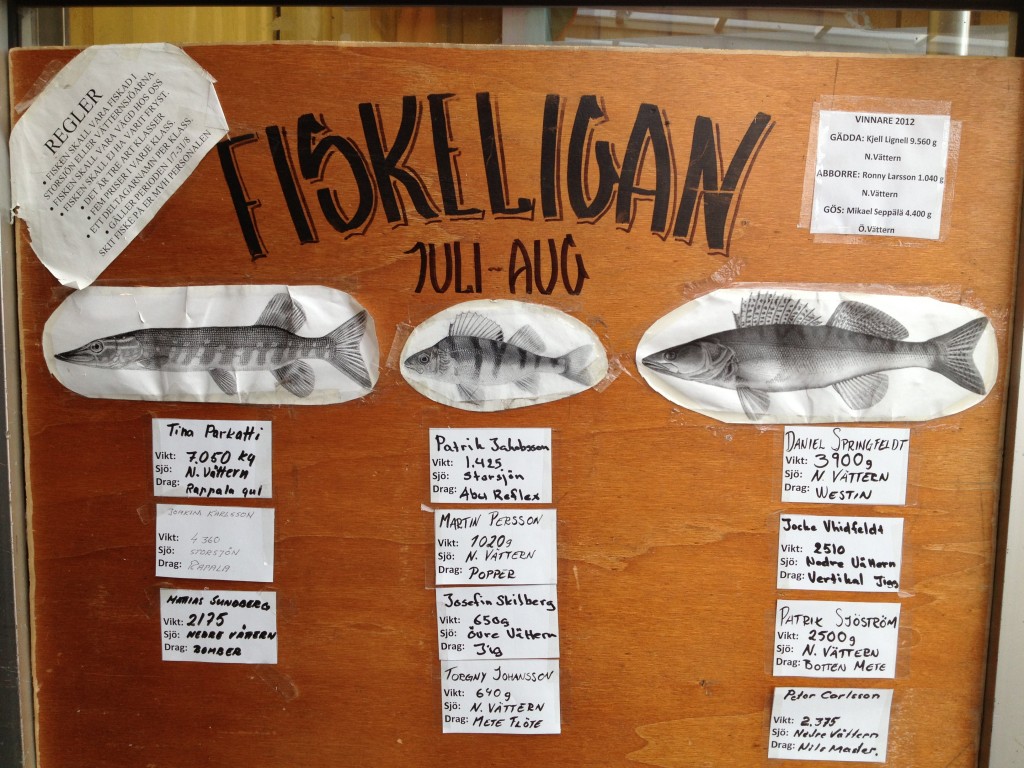 REGLER
• FISKEN SKALL VARA FISKAD I
STORSJÖN ELLER VÄTTERNSJÖARNA.
• FISKEN SKALL VARA VÄGD HOS OSS
• FISKEN SKALL EJ HA VARIT FRYST.
• DET ÄR TRE ART KLASSER
• FEM PRISER I VARJE KLASS.
• ETT DELTAGARNAMN PER KLASS.
• GÄLLER PERIODEN 1/7-31/8
SKIT FISKE PÅ ER MVH PERSONALEN
FISKELIGAN
JULI-AUG
VINNARE 2012
GÄDDA: Kjell Lignell 9.560 g
N.Vättern
ABBORRE: Ronny Larsson 1.040 g
N.Vättern
GÖS: Mikael Seppälä 4.400 g
Ö.Vättern
Tina Parkatti
Vikt: 7.050 kg
Sjö: N. Vättern
Drag: Rappala gul
JOAKIM KARLSSON
Vikt: 4 360
Sjö: STORSJÖN
Drag: RAPALA
MATTIAS SUNDBERG
Vikt: 2175
Sjö: NEDRE VÄTTERN
Drag: BOMBER
Patrik Jakobsson
Vikt: 1.425
Sjö: Storsjön
Drag: Abu Reflex
MARTIN PERSSON
Vikt: 1020g
Sjö: N. VÄTTERN
Drag: POPPER
Josefin Skilberg
Vikt: 650g
Sjö: övre Vättern
Drag: Jig
TORGNY JOHANSSON
Vikt: 640 g
Sjö: N. VÄTTERN
Drag: METE FLÖTE
DANIEL SPRINGFELDT
Vikt: 3900g
Sjö: N. VÄTTERN
Drag: WESTIN
Jocke Uhidfeldt
Vikt: 2510
Sjö: Nedre Vättern
Drag: Vertikal Jigg
PATRIK SJÖSTRÖM
Vikt: 2500g
Sjö: N. VÄTTERN
Drag: BOTTEN METE
Peter Carlsson
Vikt: 2.375
Sjö: Nedre Vättern
Drag: Nils Mader.